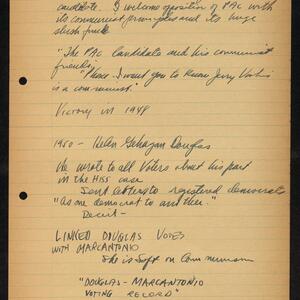 candidate. I welcome opposition of PAC with
its communist principles and its huge
slush fund
"The PAC Candidate and his communist
friends"
"Please I want you to know Jerry Voorhis
is a communist."
Victory in 1948
1950 - Helen Gahagan Douglas
He wrote to all Voters about his part
in the Hiss case
Sent letters to registered democrats
"As one democrat to another."
Deceit -
LINKED DOUGLAS VOTES
WITH MARCANTONIO
She is Soft on Communism
"DOUGLAS - MARCANTONIO
VOTING RECORD"